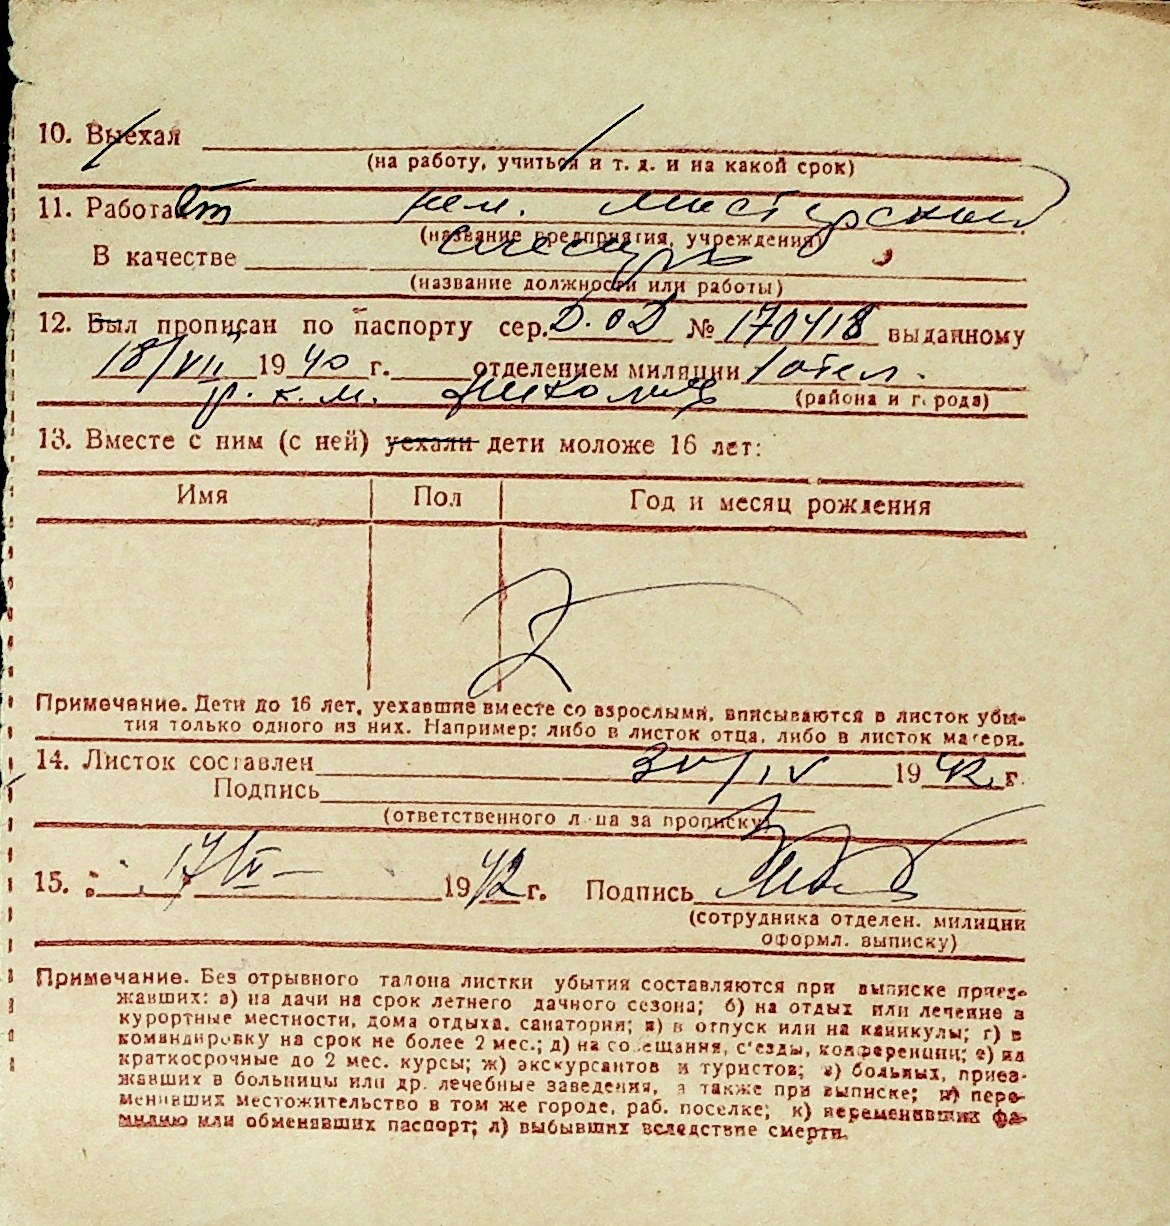 10. Выехал
(на работу, учиться и т. д. и на какой срок)
11. Работает нем. мастерской
(название предприятия, учреждения)
В качестве слесарь
(название должности или работы)
12. Был прописан по паспорту сер. № 170418 выданному
18/VII 1940 г. отделением милиции 1 отел.
р. к. м. (района и города)
13. Вместе с ним (с ней) уехали дети моложе 16 лет:
Имя Пол Год и месяц рождения
Примечание. Дети до 16 лет, уехавшие вместе со взрослыми, вписываются в листок убы-
тия только одного из них. Например: либо в листок отца, либо в листок матери.
14. Листок составлен 30/IV 1942 г.
Подпись
(ответственного лица за прописку)
15. 17/IV 1942 г. Подпись
(сотрудника отделен. милиции
оформл. выписку)
Примечание. Без отрывного талона листки убытия составляются при выписке приез-
жавших: а) на дачи на срок летнего дачного сезона; б) на отдых или лечение в
курортные местности, дома отдыха, санатории; в) в отпуск или на каникулы; г) в
командировку на срок не более 2 мес.; д) на совещания, с'езды, конференции; е) на
краткосрочные до 2 мес. курсы; ж) экскурсантов и туристов; з) больных, приез-
жавших в больницы или др. лечебные заведения, а также при выписке; и) пере-
менивших местожительство в том же городе, раб. поселке; к) переменивших фа-
милию или обменявших паспорт; л) выбывших вследствие смерти.